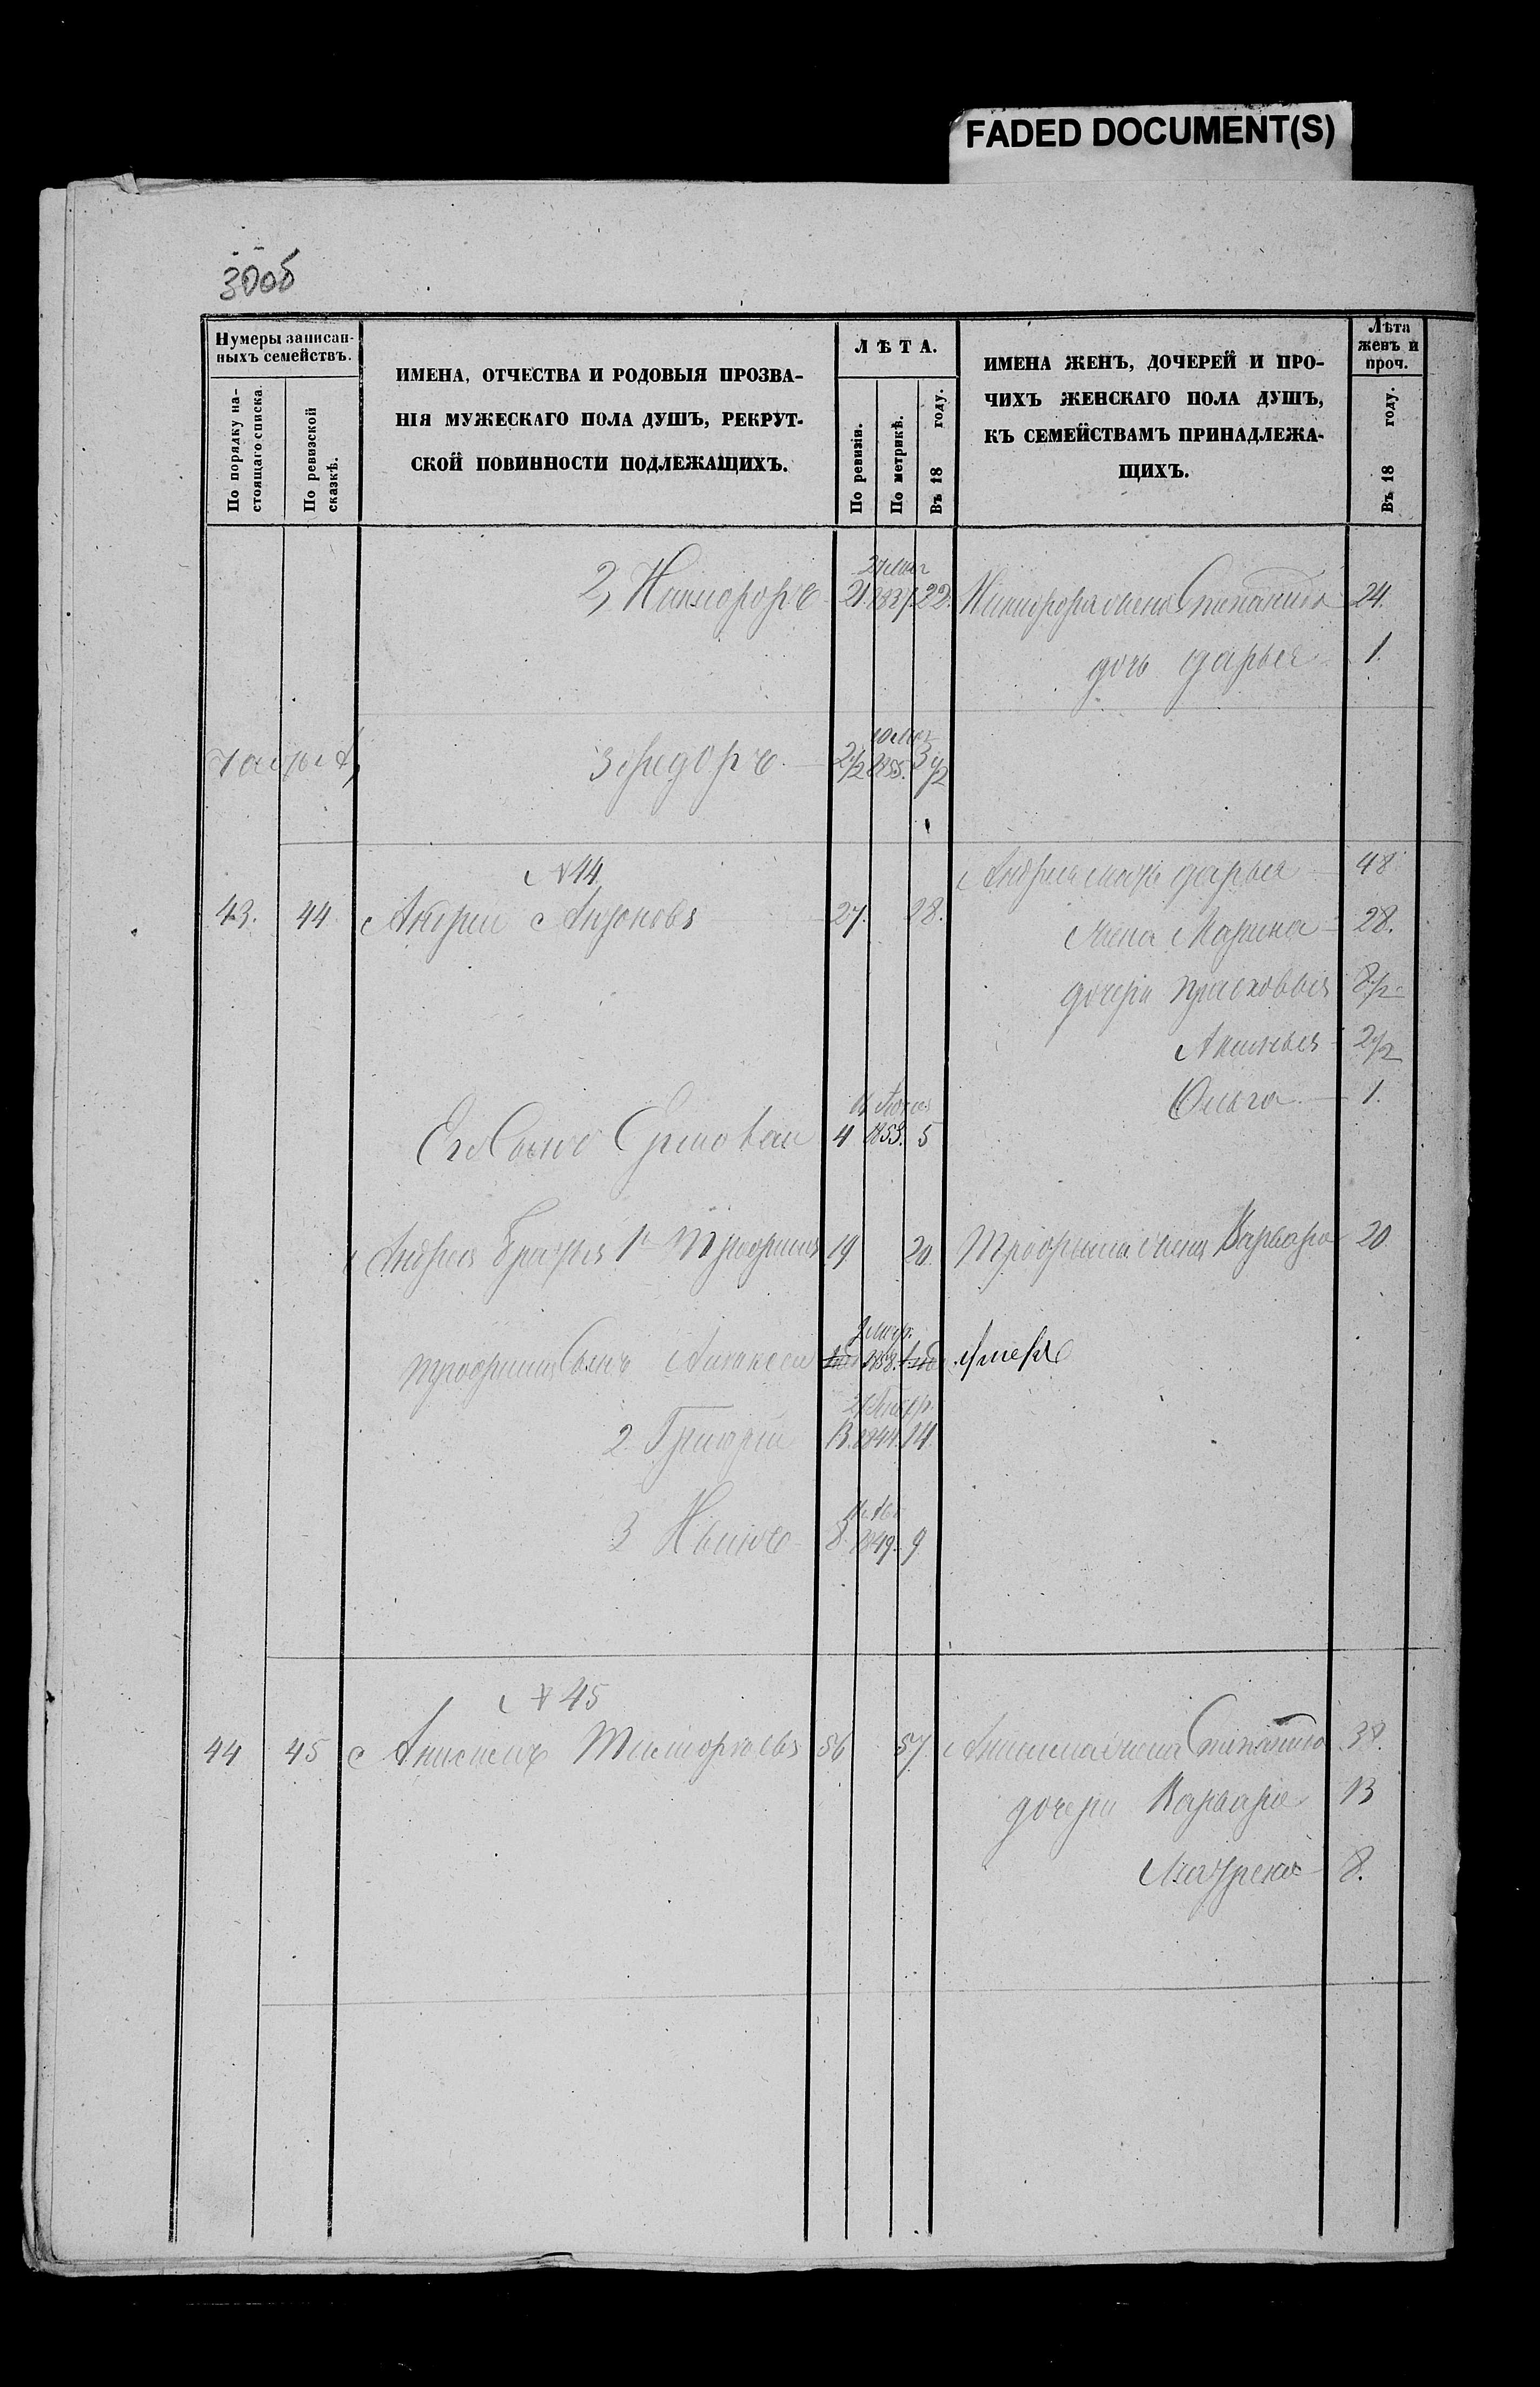 FADED DOCUMENT(S)
30об
Нумеры записан-
ныхъ семействъ.
По порядку на-
стоящаго списка.
По ревизской
сказкѣ.
ИМЕНА, ОТЧЕСТВА И РОДОВЫЯ ПРОЗВА-
НІЯ МУЖЕСКАГО ПОЛА ДУШЪ, РЕКРУТ-
СКОЙ ПОВИННОСТИ ПОДЛЕЖАЩИХЪ.
ЛѢТА.
По ревизіи.
По метрикѣ.
Въ 18 году.
ИМЕНА ЖЕНЪ, ДОЧЕРЕЙ И ПРО-
ЧИХЪ ЖЕНСКАГО ПОЛА ДУШЪ,
КЪ СЕМЕЙСТВАМЪ ПРИНАДЛЕЖА-
ЩИХЪ.
Лѣта
женъ и
проч.
Въ 18 году.
2, Никифоръ 21. 1837. 22. Никифора жена Степанида 24.
дочь дарья 1.
3 2 1/2 1855. 3 1/2
№ 44
Андрея мать дарья 48
43. 44 Андрей 27. 28.
жена Марина 28.
дочери Прасковья 8 1/2
Аксинья 2 1/2
Ольга 1.
Его Сынъ 4 1853. 5
Андрея братья 1й Трофимъ 19 20. Трофима жена Варвара 20
Трофима Сынъ Алексей 1858. умеръ
2. Григорій 13. 1844. 14.
3 Иванъ 8. 1849. 9
№ 45
44 45 Анисимъ 56 57. Анисима жена Степанида 38.
дочери Варвара 13
8.